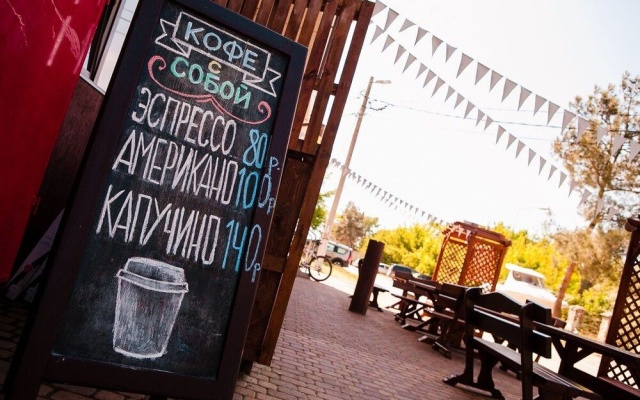 КОФЕ
С
СОБОЙ
ЭСПРЕССО 80 р.
АМЕРИКАНО 100 р.
КАПУЧИНО 140 р.